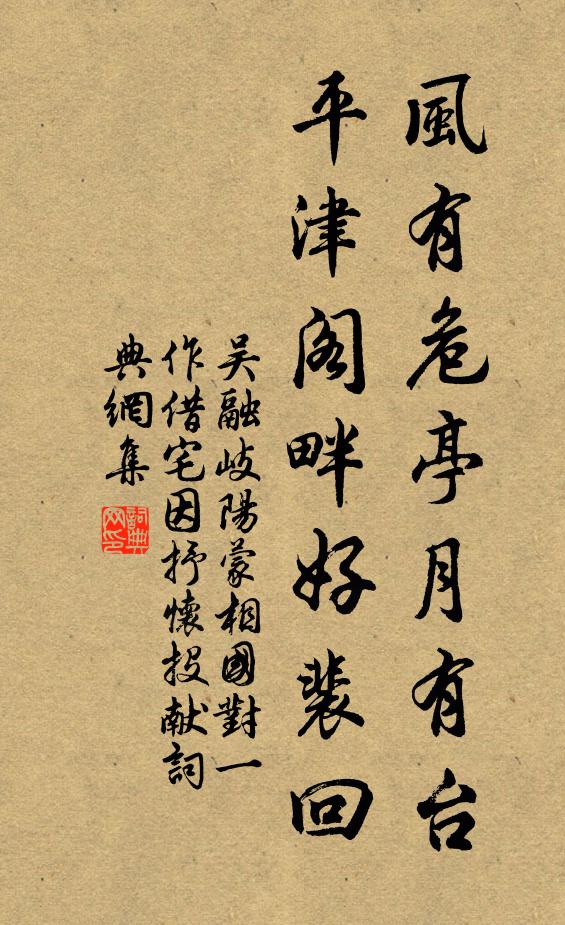 風有危亭月有台
平津阁畔好裴回
吴融岐陽蒙相國對一
作借宅因抒懷投献詞
典網集
詞典网印